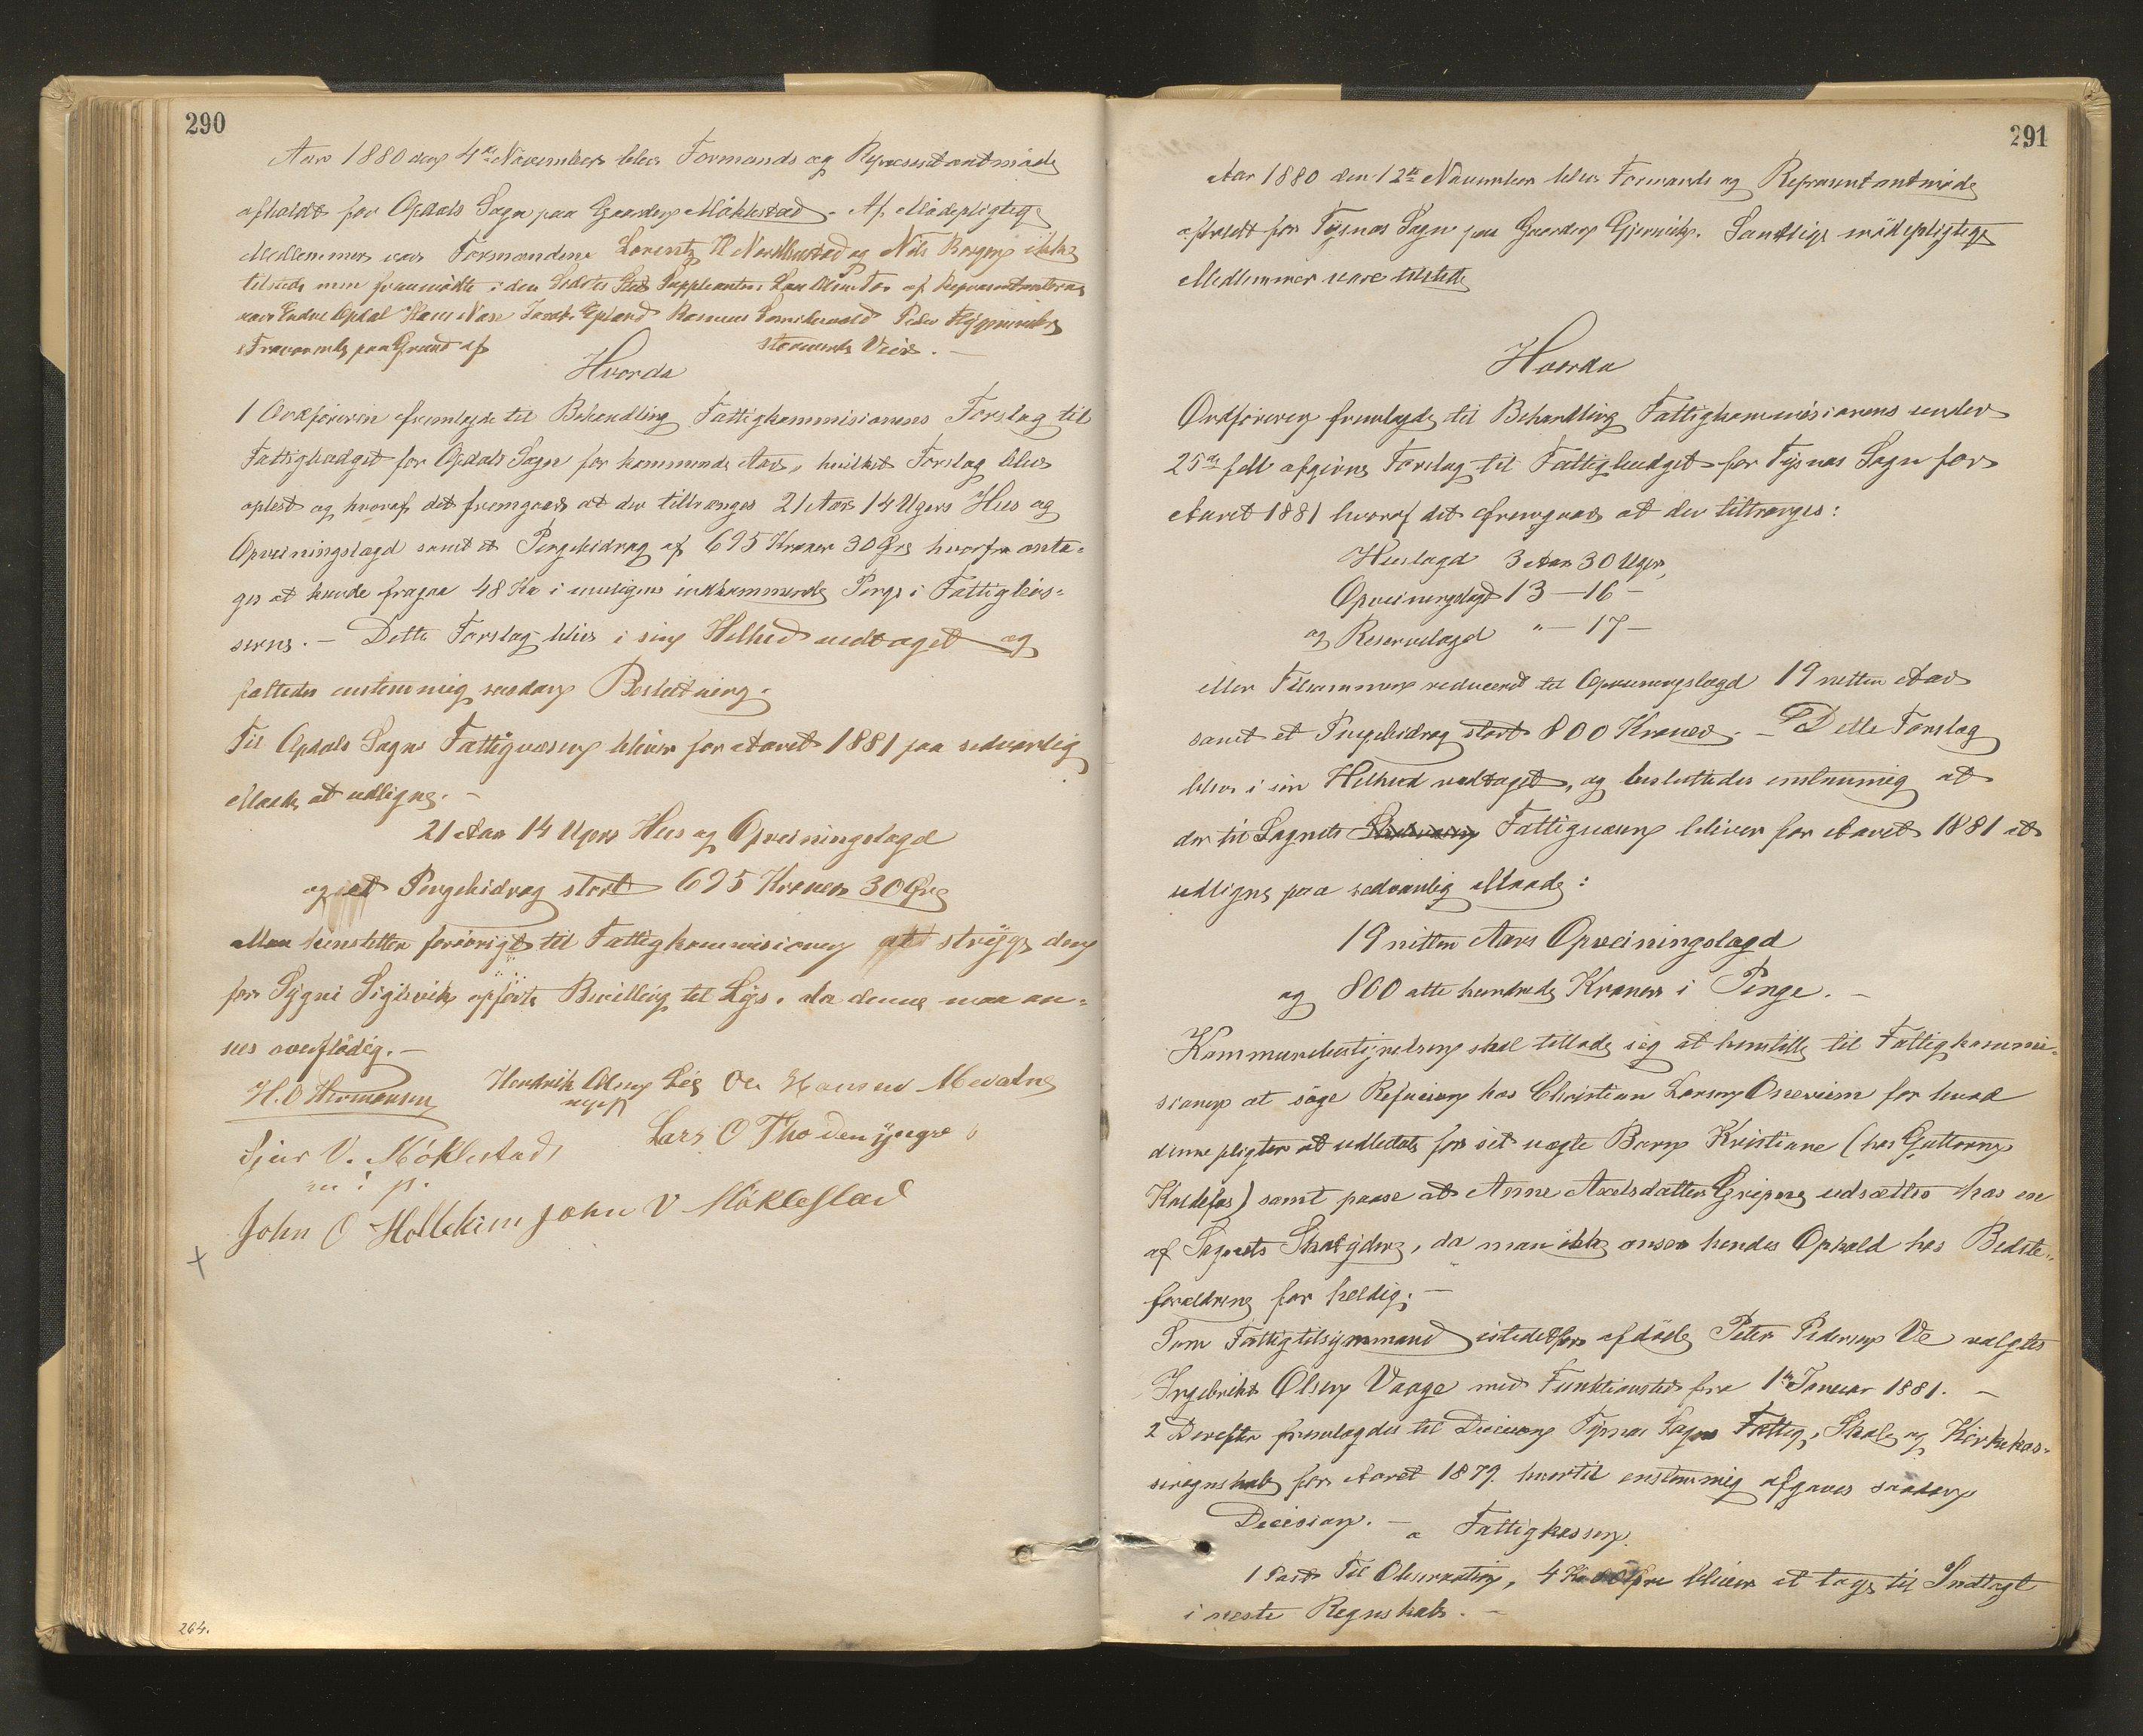 290
Aar 1880 den 4de November blev Formands og Repræsentantmøde
afholdt for Opdals Sogn paa Gaarden Møklestad. Af Mødepligtige
Medlemmer var Formændene Lorentz Nordhustad og Nils ikke
tilstede men fremmødte i den Sidstes Sted Suppleanten Lars Olsen Tho af Repræsentanterne
var Endre Opdal Hans Næse Jacob Epland Rasmus Peder
Fraværende paa Grund af stormende Veir. —
Hvorda
1 Ordføreren fremlagde til Behandling Fattigkommisionens Forslag til
Fattigbudget for Opdals Sogn for kommende Aar, hvilket Forslag blev
oplest og hvoraf det fremgaar at der tiltrænges 21 Aar 14 Ugers Hus og
Opveiningslægd samt et Pengebidrag af 695 Kroner 30 Øre hvorfra anta-
ges at kunde fragaa 48 Kr i muligens indkommende Penge i Fattigbøs-
serne. — Dette Forslag blev i sin Helhed vedtaget og
fattedes enstemmig saadan Beslutning.
Til Opdals Sogns Fattigvæsen bliver for Aaret 1881 paa sedvanlig
Maade at udligne. —
21 Aar 14 Ugers Hus og Opveiningslægd
og et Pengebidrag stort 695 Kroner 30 Øre
Man henstiller forøvrigt til Fattigkommisionen at stryge den
for Sygni Siglevik opførte Bevilling til Lys, da denne maa an-
sees overflødig. —
H. O Hermansen Hendrik Olsen Leg Ole Hansen Mevatne
Sjur V. Møklestad, Lars O Tho den yngre
m. i p.
John O Hollekim John V Møklestad
264.
291
Aar 1880 den 12te November blev Formands og Repræsentantmøde
afholdt for Tysnes Sogn paa Gaarden Gjernvik. Samtlige mødepligtige
Medlemmer vare tilstede
Hvorda
Ordføreren fremlagde til Behandling Fattigkommisionens under
25de afgivne Forslag til Fattigbudget for Tysnes Sogn for
Aaret 1881 hvoraf det fremgaar at der tiltrænges:
Huslægd 3 Aar 30 Uger,
Opveiningslægd 13 — 16 —
og Reservelægd " — 17 —
eller Tilsammen reduceret til Opveiningslægd 19 nitten Aar
samt et Pengebidrag stort 800 Kroner. — Dette Forslag
blev i sin Helhed vedtaget, og besluttedes enstemmig at
der til Sognets Fattigvæsen bliver for Aaret 1881 at
udligne paa sedvanlig Maade:
19 nitten Aars Opveiningslægd
og 800 atte hundrede Kroner i Penge. —
Kommunebestyrelsen skal tillade sig at henstille til Fattigkommi-
sionen at søge Refusion hos Christian Larsen Onereim for hvad
denne pligter at udlede for sit uægte Barn Kristiane (hos Guttorm
Kaldefos) samt paase at Anne Axelsdatter Gripne udsættes hos en
af Sognets Skatydere, da man ikke anser hendes Ophold hos Bedste-
forældrene for heldig. —
Som Fattigtilsynsmand istedetfor afdøde Peter Pedersen Ve valgtes
Ingebrikt Olsen Vaage med Funktionstid fra 1ste Januar 1881. —
2 Derefter fremlagdes til Decision Tysnes Sogns Fattig, Skole og Kirkekas-
seregnskab for Aaret 1879. hvortil enstemmig afgaves saadan
Decision. — a Fattigkassen.
1 Post Til Observation, 4 Kr Øre bliver at tage til Indtægt
i neste Regnskab. —